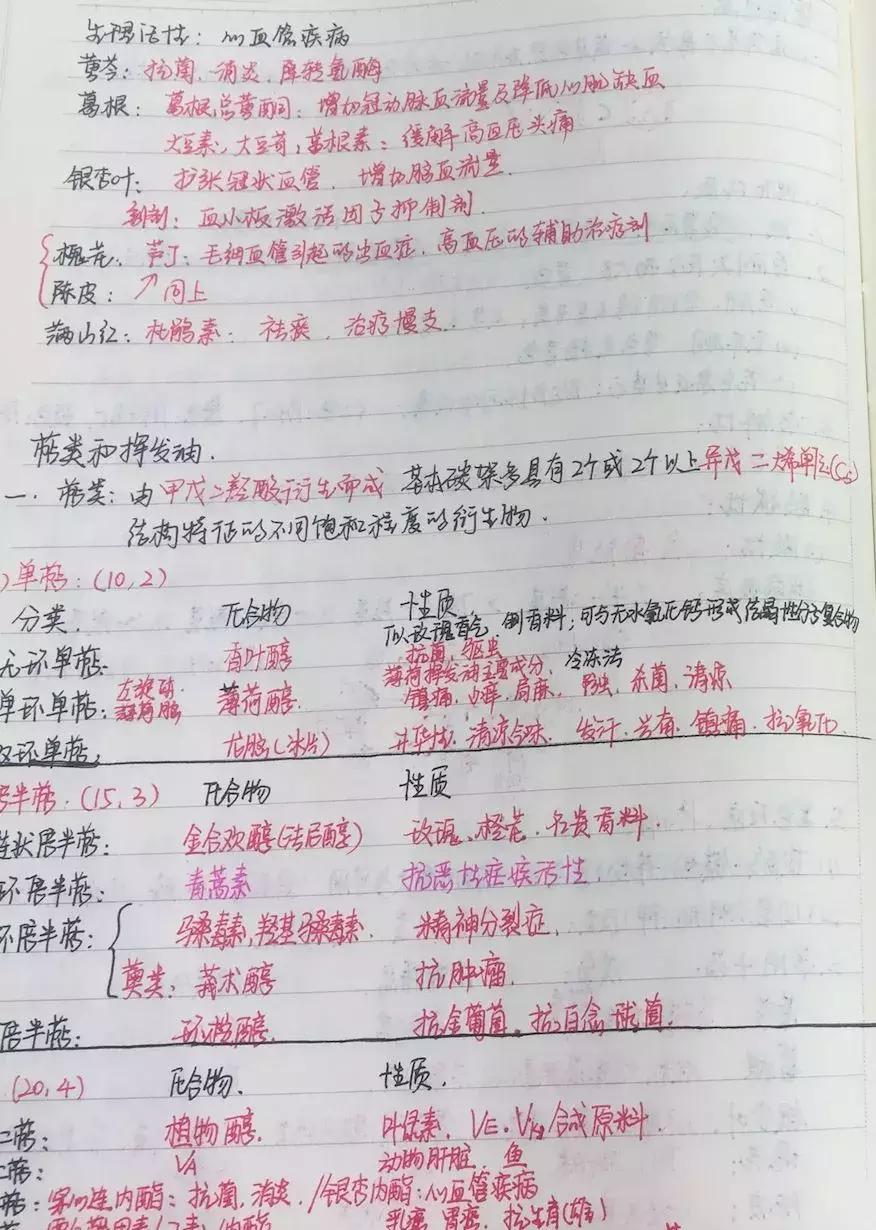 生理活性：心血管疾病
黄芩：抗菌、消炎、降转氨酶
葛根：葛根总黄酮：增加冠动脉血流量及降低心肌缺血
大豆素，大豆苷，葛根素：缓解高血压头痛
银杏叶：扩张冠状血管，增加脑血流量
制剂：血小板激活因子抑制剂
槐花：芦丁：毛细血管引起的出血症，高血压的辅助治疗剂
陈皮：↗同上
满山红：杜鹃素：祛痰，治疗慢支
萜类和挥发油．
一．萜类：由甲戊二羟酸衍生而成 基本碳架多具有2个或2个以上异戊二烯单元(C5)
结构特征的不同饱和程度的衍生物．
)单萜：(10,2)
分类． 化合物 性质
似玫瑰香气，制香料；可与无水氯化钙形成结晶性分子复合物
无环单萜： 香叶醇 抗菌、驱虫
薄荷挥发油主要成分，冷冻法
单环单萜： 薄荷醇． 镇痛，止痒，局麻，杀菌，清凉
双环单萜： 龙脑(冰片) 升华性，清凉气味，发汗，兴奋，镇痛，抗氧化．
倍半萜：(15,3) 化合物 性质
链状倍半萜： 金合欢醇(法尼醇) 玫瑰、橙花．名贵香料．
环倍半萜： 青蒿素 抗恶性症疾活性
环倍半萜： 马桑毒素，羟基马桑毒素． 精神分裂症．
薁类：莪术醇 抗肿瘤．
倍半萜： 环桉醇． 抗金葡菌，抗白念球菌．
(20,4) 化合物． 性质．
二萜： 植物醇． 叶绿素，VE、VK1合成原料．
二萜： VA 动物肝脏，鱼
萜：穿心莲内酯：抗菌，消炎．/银杏内酯：心血管疾病
乳癌，胃癌，抗生育